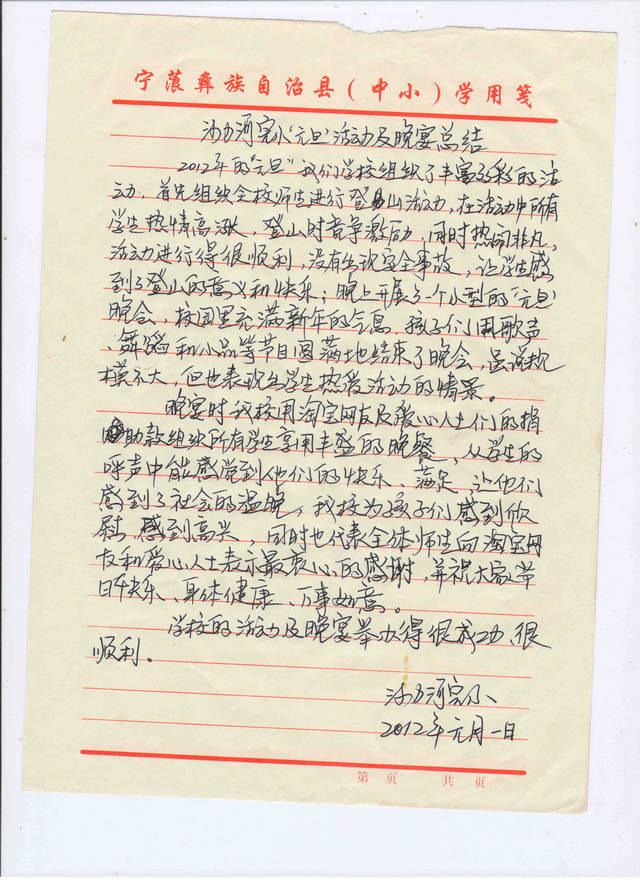 宁蒗彝族自治县(中小)学用笺
沙力河完小“元旦”活动及晚宴总结
2012年的“元旦”我们学校组织了丰富多彩的活
动，首先组织全校师生进行登山活动，在活动中所有
学生热情高涨，登山时竞争激励，同时热闹非凡，
活动进行得很顺利，没有出现安全事故，让学生感
到了登山的意义和快乐；晚上开展了一个小型的“元旦”
晚会，校园里充满新年的气息，孩子们用歌声
、舞蹈和小品等节目圆满地结束了晚会，虽说规
模不大，但也表现出学生热爱活动的情景。
晚宴时我校用淘宝网友及爱心人士们的捐
助款组织所有学生享用丰盛的晚餐，从学生的
呼声中能感觉到他们的快乐、满足，让他们
感到了社会的温暖，我校为孩子们感到欣
慰，感到高兴，同时也代表全体师生向淘宝网
友和爱心人士表示最衷心的感谢，并祝大家节
日快乐、身体健康、万事如意。
学校的活动及晚宴举办得很成功、很
顺利。
沙力河完小
2012年元月一日
第 页 共 页